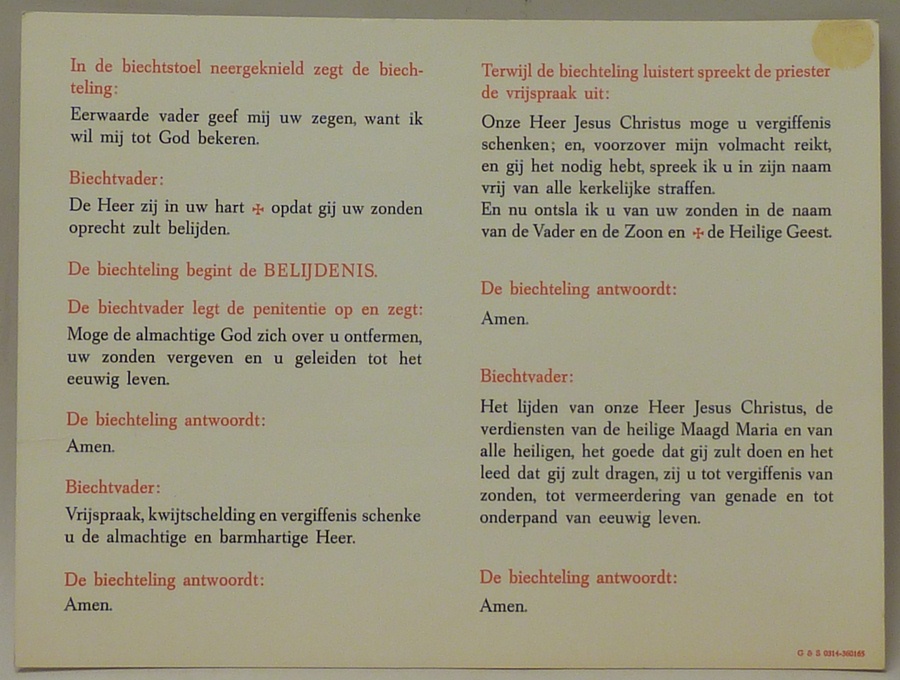 In de biechtstoel neergeknield zegt de biech-
teling:
Eerwaarde vader geef mij uw zegen, want ik
wil mij tot God bekeren.
Biechtvader:
De Heer zij in uw hart ✠ opdat gij uw zonden
oprecht zult belijden.
De biechteling begint de BELIJDENIS.
De biechtvader legt de penitentie op en zegt:
Moge de almachtige God zich over u ontfermen,
uw zonden vergeven en u geleiden tot het
eeuwig leven.
De biechteling antwoordt:
Amen.
Biechtvader:
Vrijspraak, kwijtschelding en vergiffenis schenke
u de almachtige en barmhartige Heer.
De biechteling antwoordt:
Amen.
Terwijl de biechteling luistert spreekt de priester
de vrijspraak uit:
Onze Heer Jesus Christus moge u vergiffenis
schenken; en, voorzover mijn volmacht reikt,
en gij het nodig hebt, spreek ik u in zijn naam
vrij van alle kerkelijke straffen.
En nu ontsla ik u van uw zonden in de naam
van de Vader en de Zoon en ✠ de Heilige Geest.
De biechteling antwoordt:
Amen.
Biechtvader:
Het lijden van onze Heer Jesus Christus, de
verdiensten van de heilige Maagd Maria en van
alle heiligen, het goede dat gij zult doen en het
leed dat gij zult dragen, zij u tot vergiffenis van
zonden, tot vermeerdering van genade en tot
onderpand van eeuwig leven.
De biechteling antwoordt:
Amen.
G & S 0314-360165